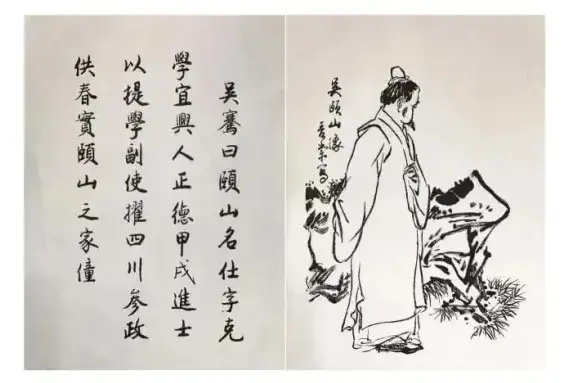 吴騫曰頤山名仕字克
學宜興人正德甲戌進士
以提學副使擢四川參政
供春實頤山之家僮
吴頤山像